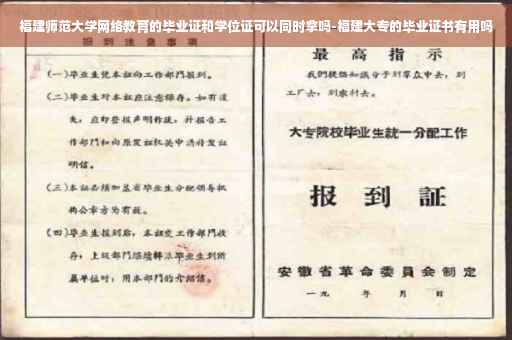 福建师范大学网络教育的毕业证和学位证可以同时拿吗-福建大专的毕业证书有用吗
报到注意事项
(一)毕业生凭本证向工作部门报到。
(二)毕业生对本证应注意保存。如有遗
失,应即登报声明作废,并报告工
作部门和向原发证机关申请补发证
明信。
(三)本证必须加盖省毕业生分配领导机
构公章方为有效。
(四)毕业生报到后,本证交工作部门收
存;上级部门
毕业生到所
属单位时,用本部门的介绍信。
最高指示
我們提倡知識分子到羣众中去,到
工厂去,到农村去。
大专院校毕业生統一分配工作
报到証
安徽省革命委員会制定
一九 年 月 日